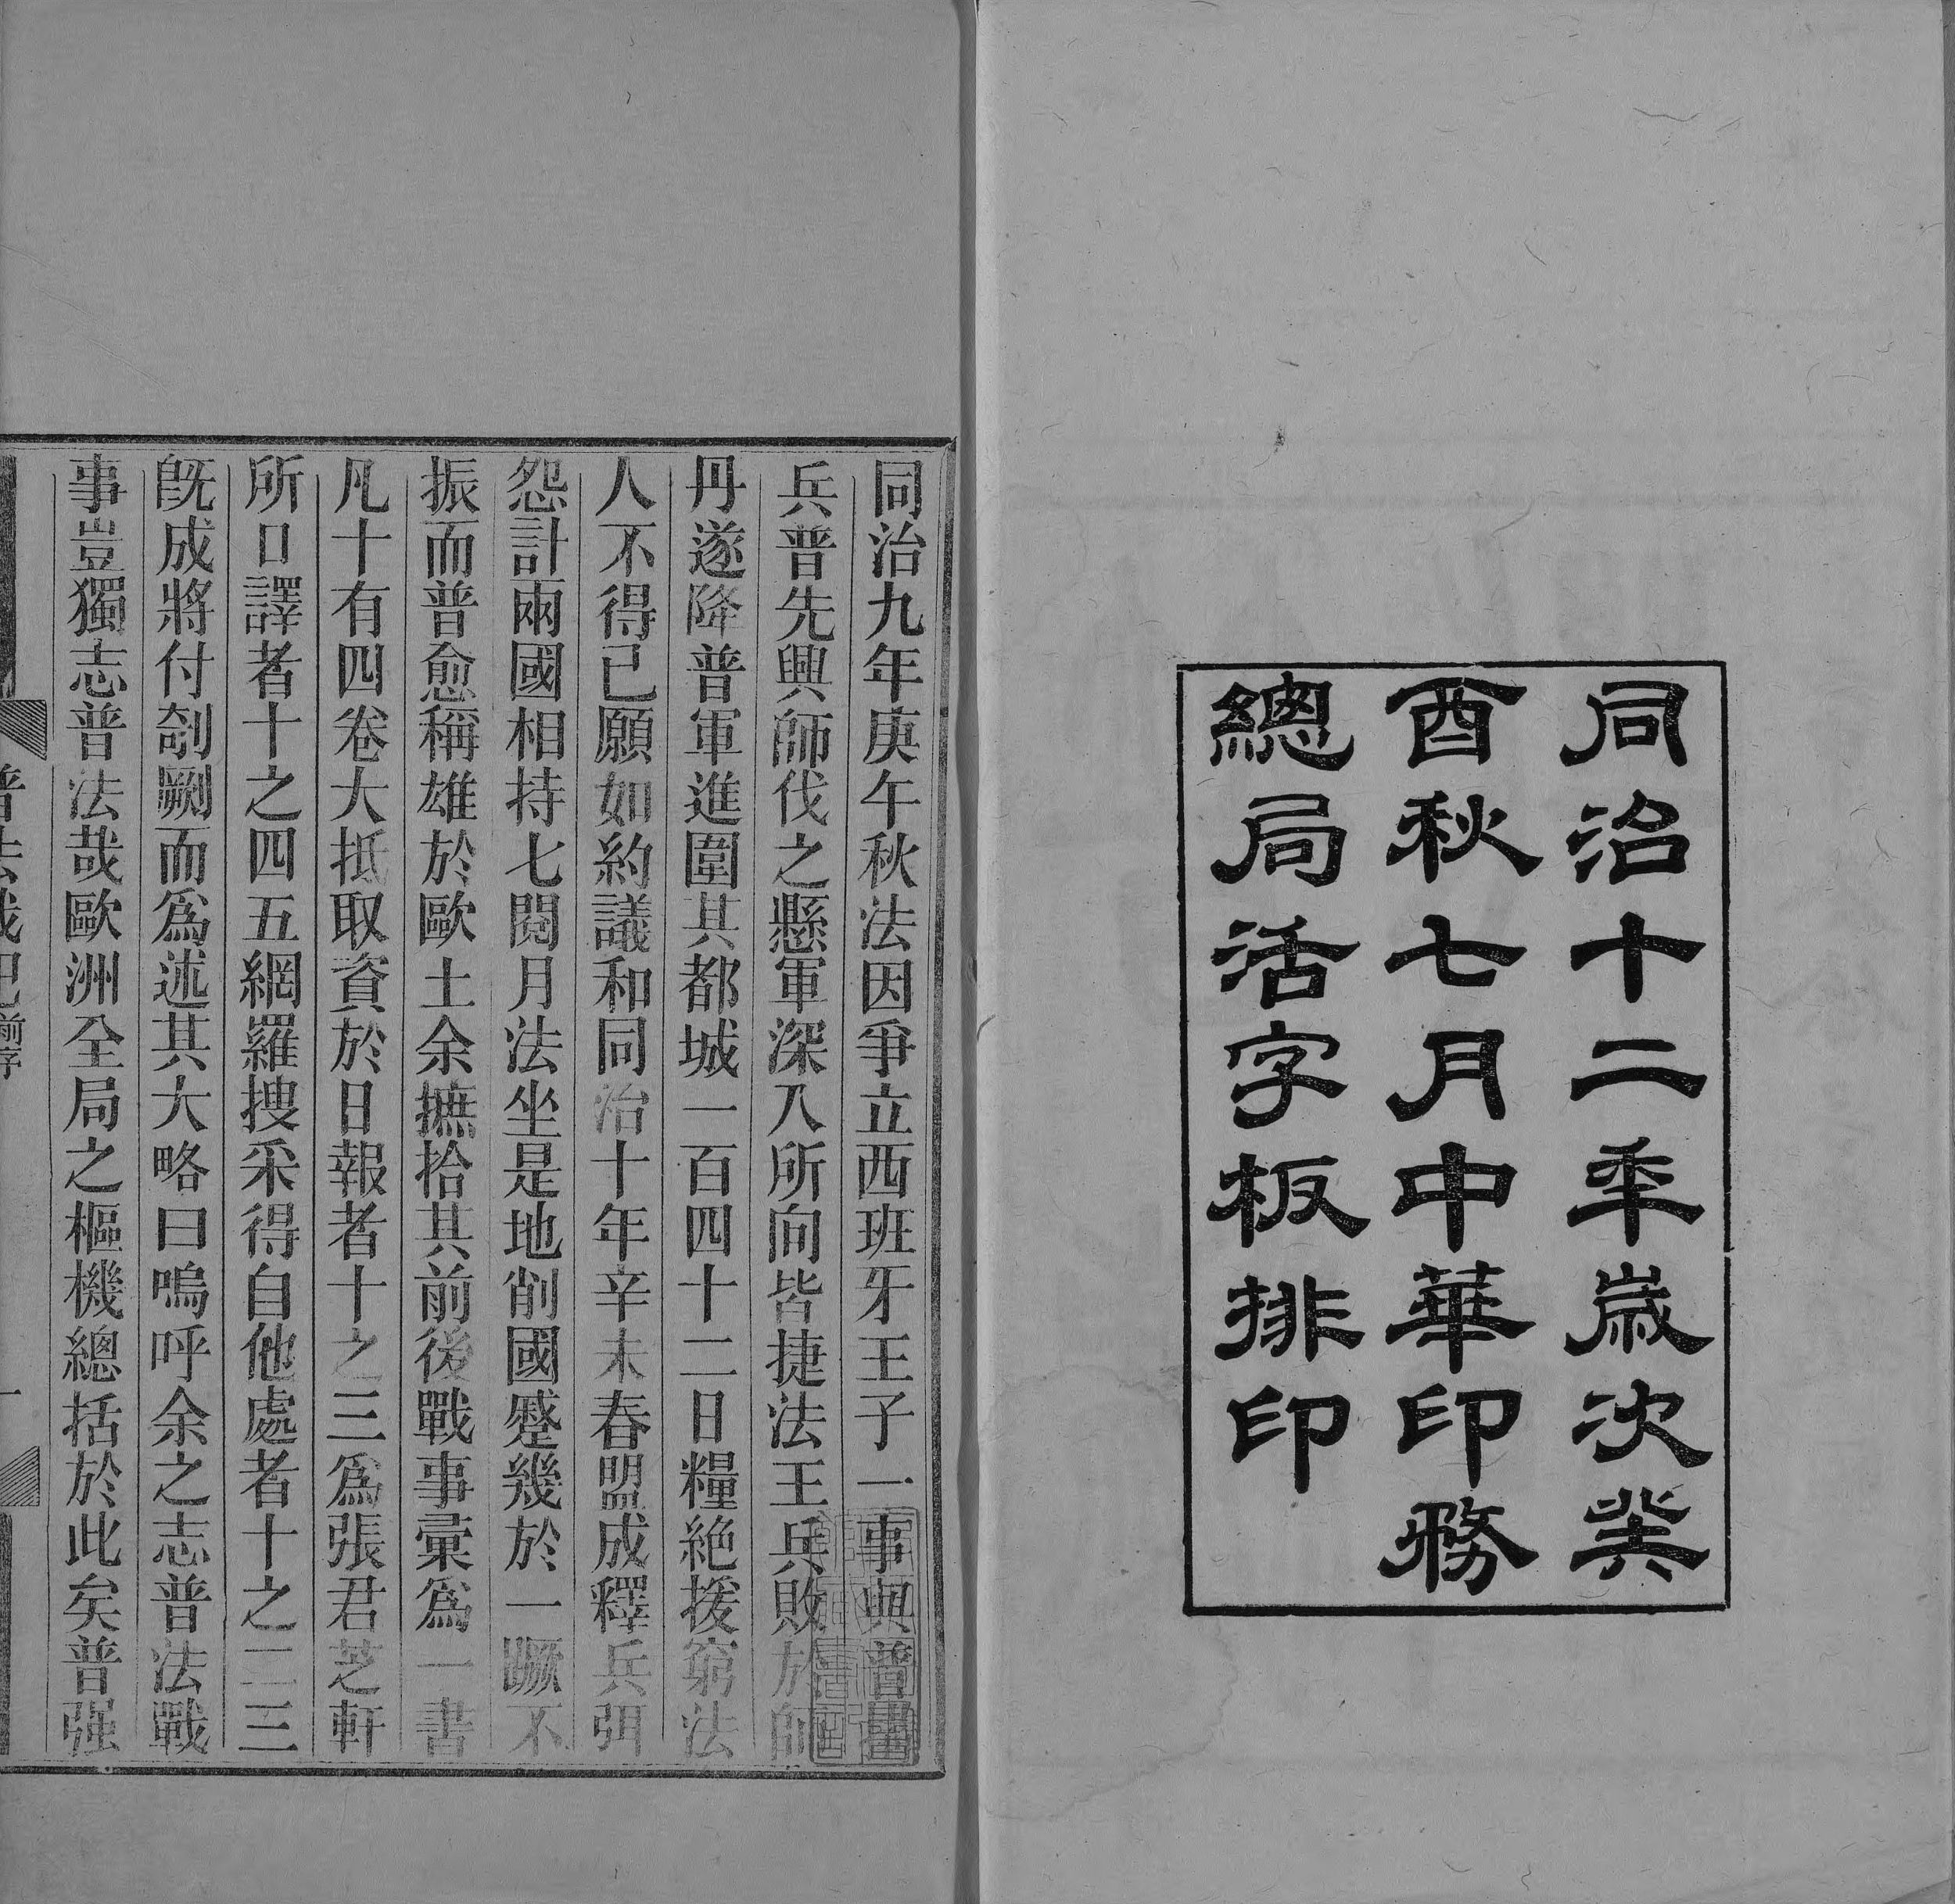 同治十二年歲次癸
酉秋七月中華印務
總局活字板排印
同治九年庚午秋法因爭立西班牙王子一事與普搆
兵普先興師伐之懸軍深入所向皆捷法王兵敗於師
丹遂降普軍進圍其都城一百四十二日糧絶援窮法
人不得已願如約議和同治十年辛未春盟成釋兵弭
怨計兩國相持七閱月法坐是地削國蹙幾於一蹶不
振而普愈稱雄於歐土余摭拾其前後戰事彙爲一書
凡十有四卷大抵取資於日報者十之三爲張君芝軒
所口譯者十之四五網羅搜采得自他處者十之二三
旣成將付剞劂而爲述其大略曰嗚呼余之志普法戰
事豈獨志普法哉歐洲全局之樞機總括於此矣普强
普法戰紀 前序 一